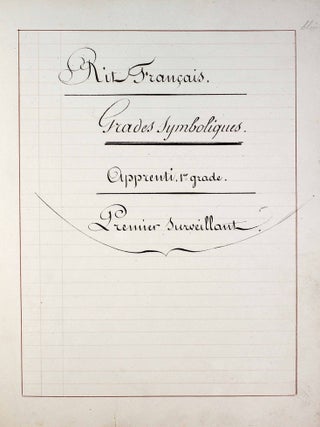 Rit Français.
Grades Symboliques.
Apprenti. 1er grade.
Premier Surveillant.